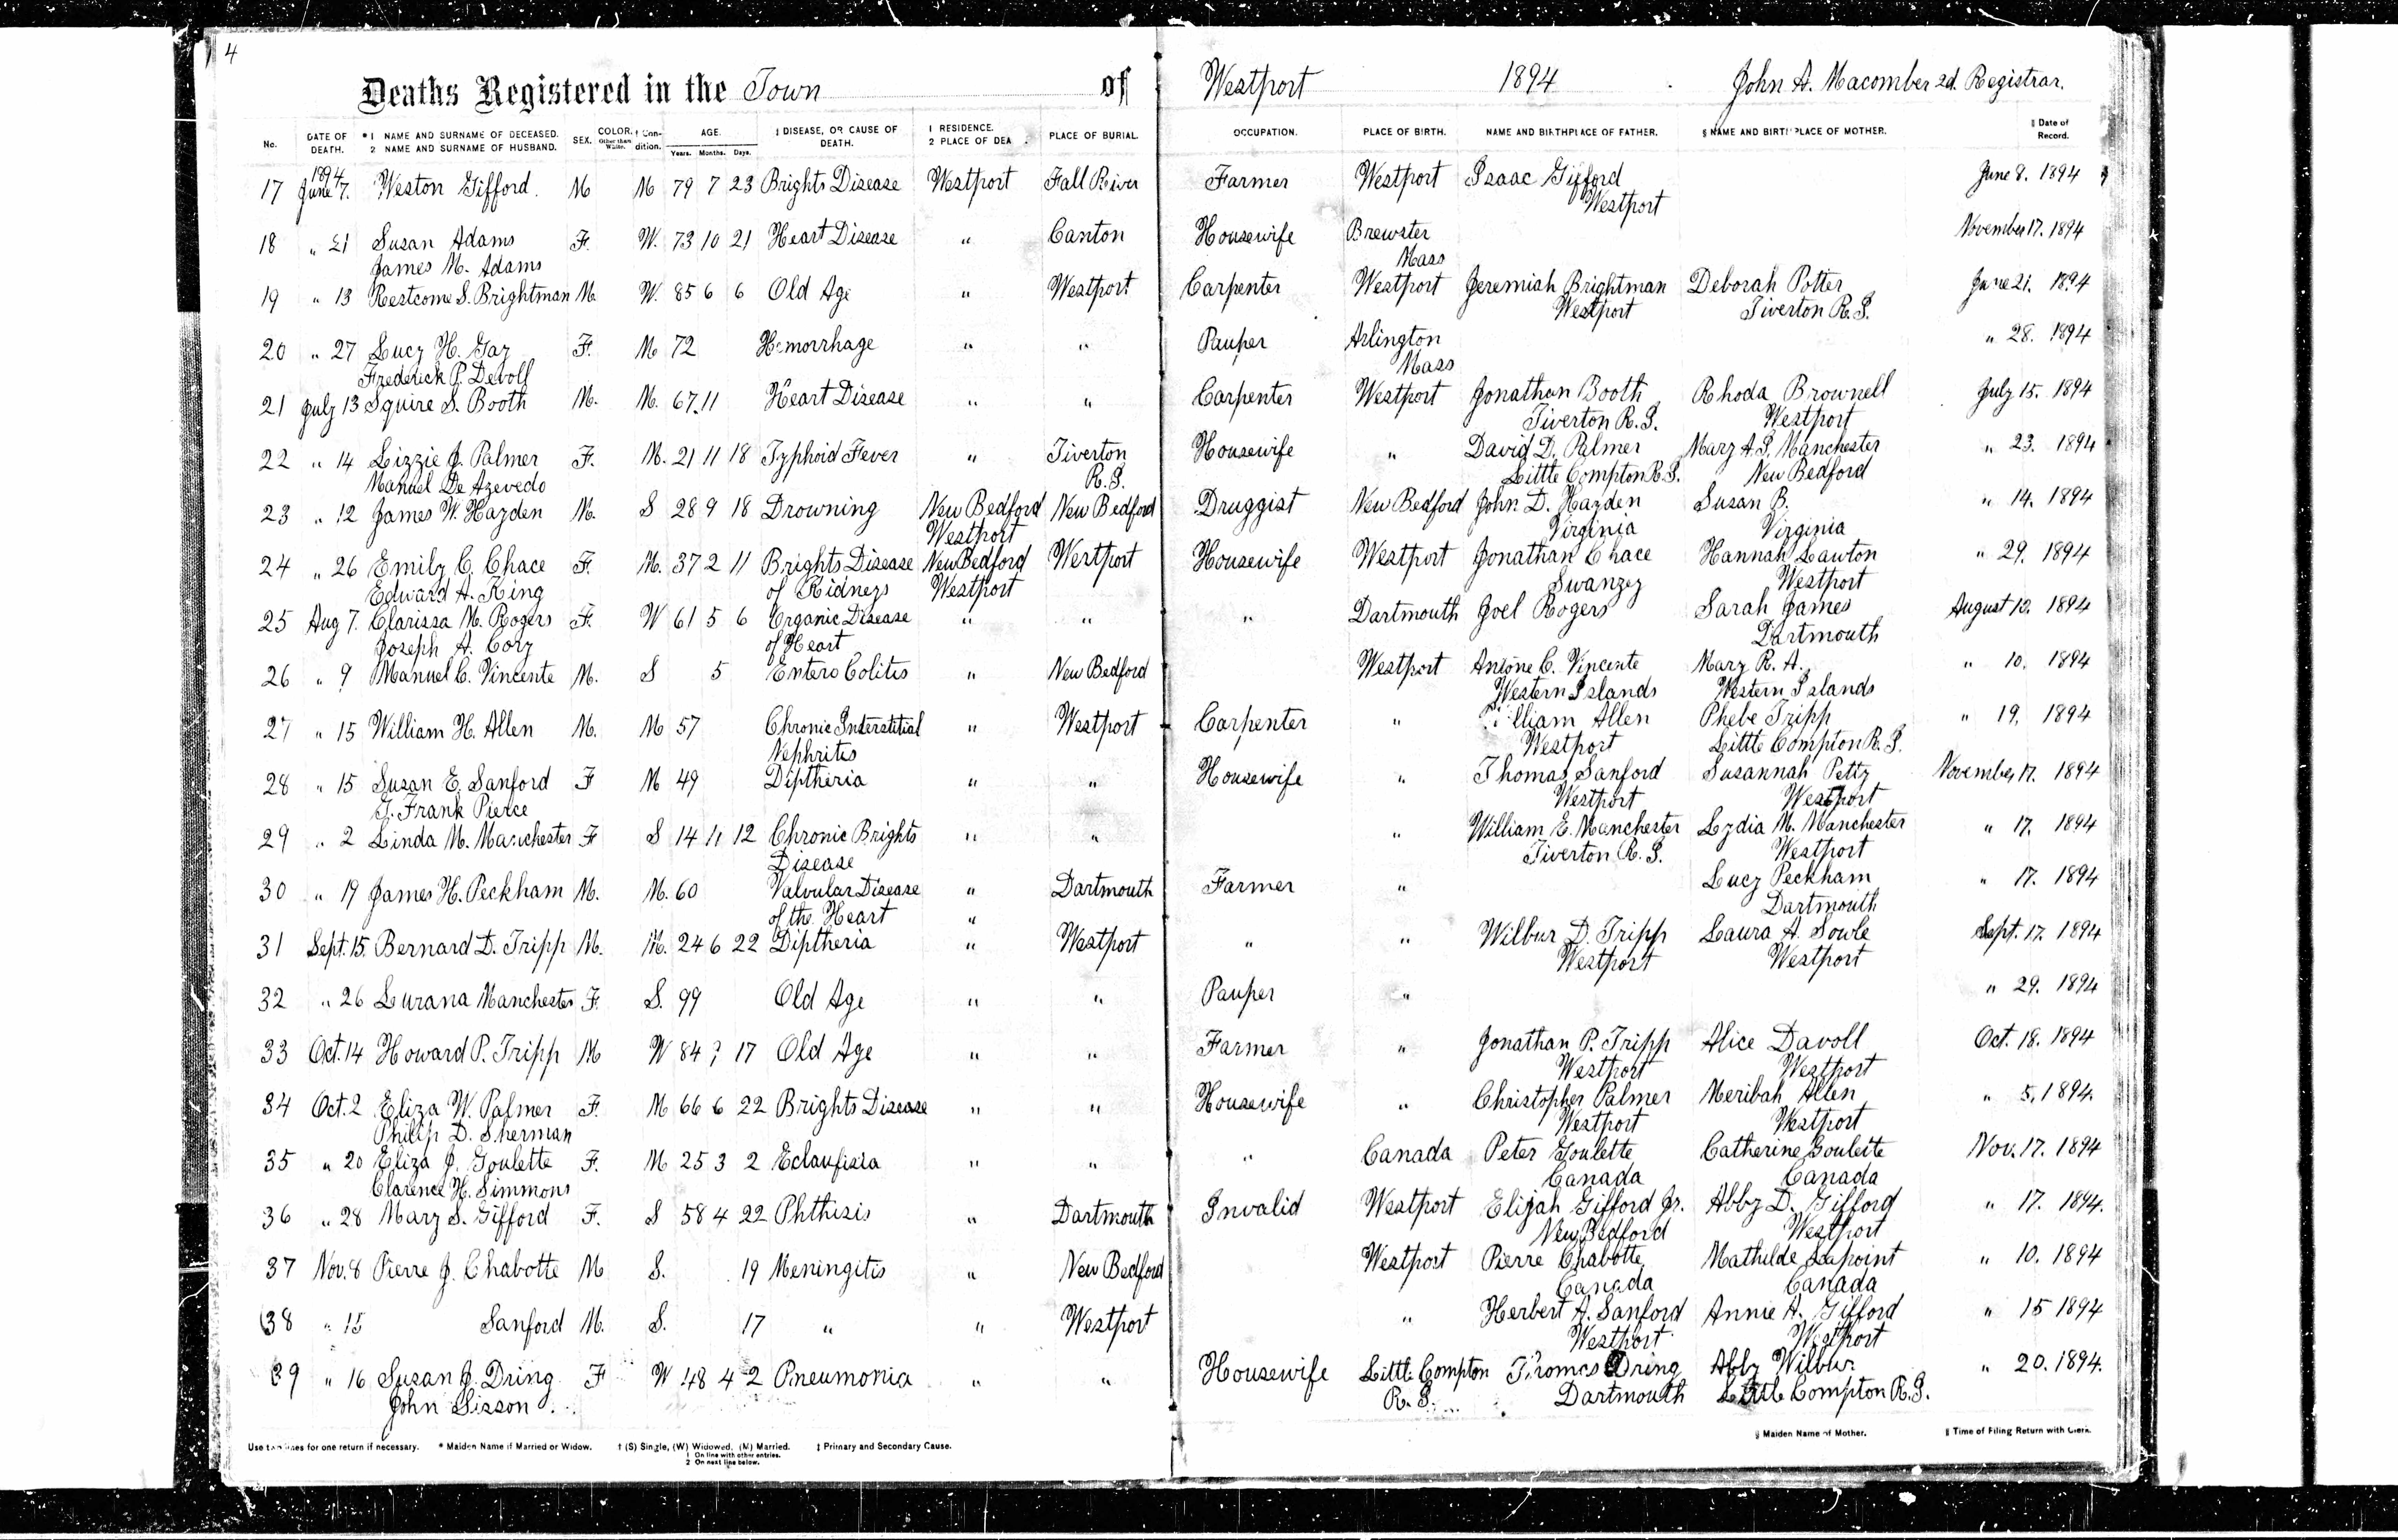 4
Deaths Registered in the Town of Westport 1894 John A. Macomber 2d. Registrar.
No. DATE OF DEATH. *1 NAME AND SURNAME OF DECEASED. 2 NAME AND SURNAME OF HUSBAND. SEX. COLOR. Other than White. † Condition. AGE. Years. Months. Days. ‡ DISEASE, OR CAUSE OF DEATH. 1 RESIDENCE. 2 PLACE OF DEA PLACE OF BURIAL. OCCUPATION. PLACE OF BIRTH. NAME AND BIRTHPLACE OF FATHER. § NAME AND BIRTHPLACE OF MOTHER. ‖ Date of Record.
1894
17 June 7. Weston Gifford. M M 79 7 23 Brights Disease Westport Fall River Farmer Westport Isaac Gifford June 8. 1894
Westport
18 " 21 Susan Adams F. W. 73 10 21 Heart Disease " Canton Housewife Brewster November 17. 1894
James M. Adams Mass
19 " 13 Restcome S. Brightman M. W. 85 6 6 Old Age " Westport Carpenter Westport Jeremiah Brightman Deborah Potter June 21. 1894
Westport Tiverton R.I.
20 " 27 Lucy H. Gay F. M 72 Hemorrhage " " Pauper Arlington " 28. 1894
Frederick P. Devoll Mass
21 July 13 Squire S. Booth M. M. 67. 11 Heart Disease " " Carpenter Westport Jonathan Booth Rhoda Brownell July 15. 1894
Tiverton R.I. Westport
22 " 14 Lizzie J. Palmer F. M. 21 11 18 Typhoid Fever " Tiverton Housewife " David D. Palmer Mary A.S. Manchester " 23. 1894
Manuel De Azevedo R.I. Little Compton R.I. New Bedford
23 " 12 James W. Hayden M. S 28 9 18 Drowning New Bedford New Bedford Druggist New Bedford John D. Hayden Susan B. " 14. 1894
Westport Virginia Virginia
24 " 26 Emily C. Chace F. M. 37 2 11 Brights Disease New Bedford Westport Housewife Westport Jonathan Chace Hannah Lawton " 29. 1894
Edward A. King of Kidneys Westport Swanzey Westport
25 Aug 7. Clarissa M. Rogers F. W 61 5 6 Organic Disease " " " Dartmouth Joel Rogers Sarah James August 1894
Joseph A. Cory of Heart Dartmouth
26 " 9 Manuel C. Vincente M. S 5 Entero Colitis " New Bedford Westport Antone C. Vincente Mary R. A. " 10. 1894
Western Islands Western Islands
27 " 15 William H. Allen M. M 57 Chronic Interstitial " Westport Carpenter " William Allen Phebe Tripp " 19. 1894
Nephritis Westport Little Compton R.I.
28 " 15 Susan E. Sanford F M 49 Diptheria " " Housewife " Thomas Sanford Susannah Petty November 17. 1894
Frank Pierce Westport Westport
29 " 2 Linda M. Manchester F S 14 11 12 Chronic Brights " " " William E. Manchester Lydia M. Manchester " 17. 1894
Disease Tiverton R.I. Westport
30 " 19 James H. Peckham M. M. 60 Valvular Disease " Dartmouth Farmer " Lucy Peckham " 17. 1894
of the Heart " Dartmouth
31 Sept. 15. Bernard D. Tripp M. M. 24 6 22 Diptheria " Westport " " Wilbur D. Tripp Laura A. Sowle Sept. 17. 1894
Westport Westport
32 " 26 Lurana Manchester F. S. 99 Old Age " " Pauper " " 29. 1894
33 Oct. 14 Howard P. Tripp M W 84 17 Old Age " " Farmer " Jonathan P. Tripp Alice Davoll Oct. 18. 1894
Westport Westport
34 Oct. 2 Eliza W. Palmer F. M 66 6 22 Brights Disease " " Housewife " Christopher Palmer Meribah Allen " 5. 1894.
Philip D. Sherman Westport Westport
35 " 20 Eliza J. Goulette F. M 25 3 2 Eclaufisia " " " Canada Peter Goulette Catherine Goulette Nov. 17. 1894
Clarence H. Simmons Canada Canada
36 " 28 Mary S. Gifford F. S 58 4 22 Phthisis " Dartmouth Invalid Westport Elijah Gifford Jr. Abby D. Gifford " 17. 1894.
New Bedford Westport
37 Nov. 8 Pierre J. Chabotte M S. 19 Meningitis " New Bedford Westport Pierre Chabotte Mathilde Lapoint " 10. 1894
Canada Canada
38 " 15 Sanford M. S. 17 " " Westport " Herbert A. Sanford Annie A. Gifford " 15 1894
Westport Westport
39 " 16 Susan J. Dring F W 48 4 2 Pneumonia " " Housewife Little Compton Thomas Dring Abby Wilbur. " 20. 1894.
John Sisson. R.I. Dartmouth Little Compton R.I.
Use two lines for one return if necessary. * Maiden Name if Married or Widow. † (S) Single, (W) Widowed, (M) Married. ‡ Primary and Secondary Cause. § Maiden Name of Mother. ‖ Time of Filing Return with Clerk.
1 On line with other entries.
2 On next line below.